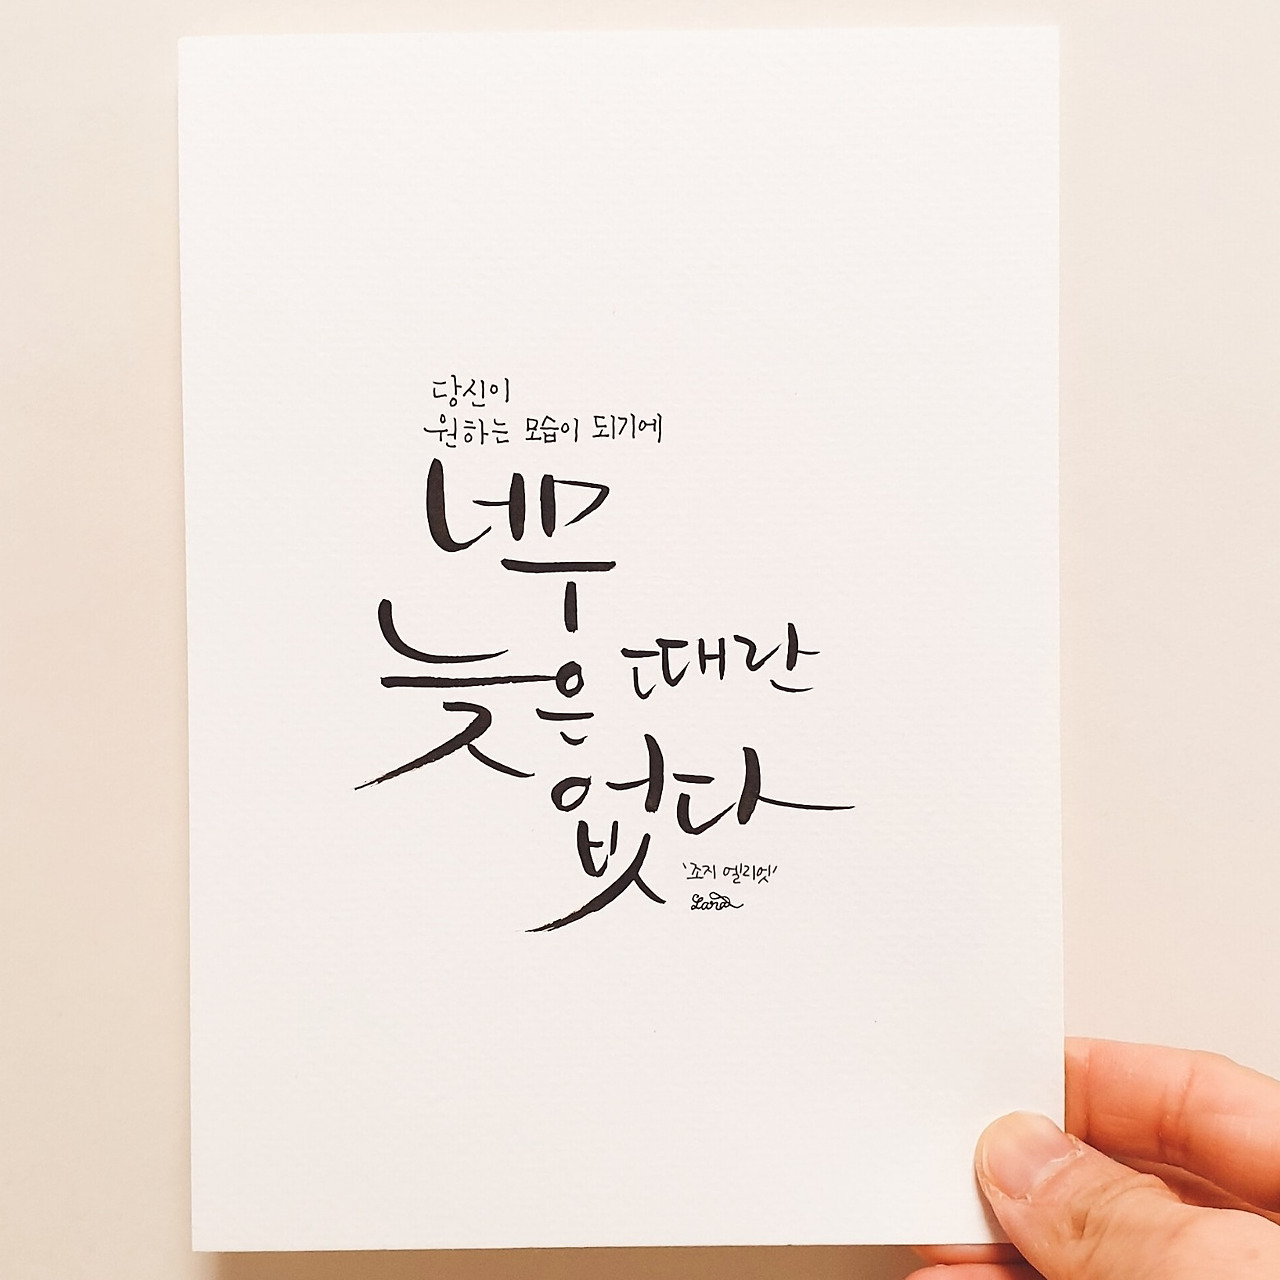 당신이
원하는 모습이 되기에
너무
늦은 때란
없다
'조지 엘리엇'
Lara